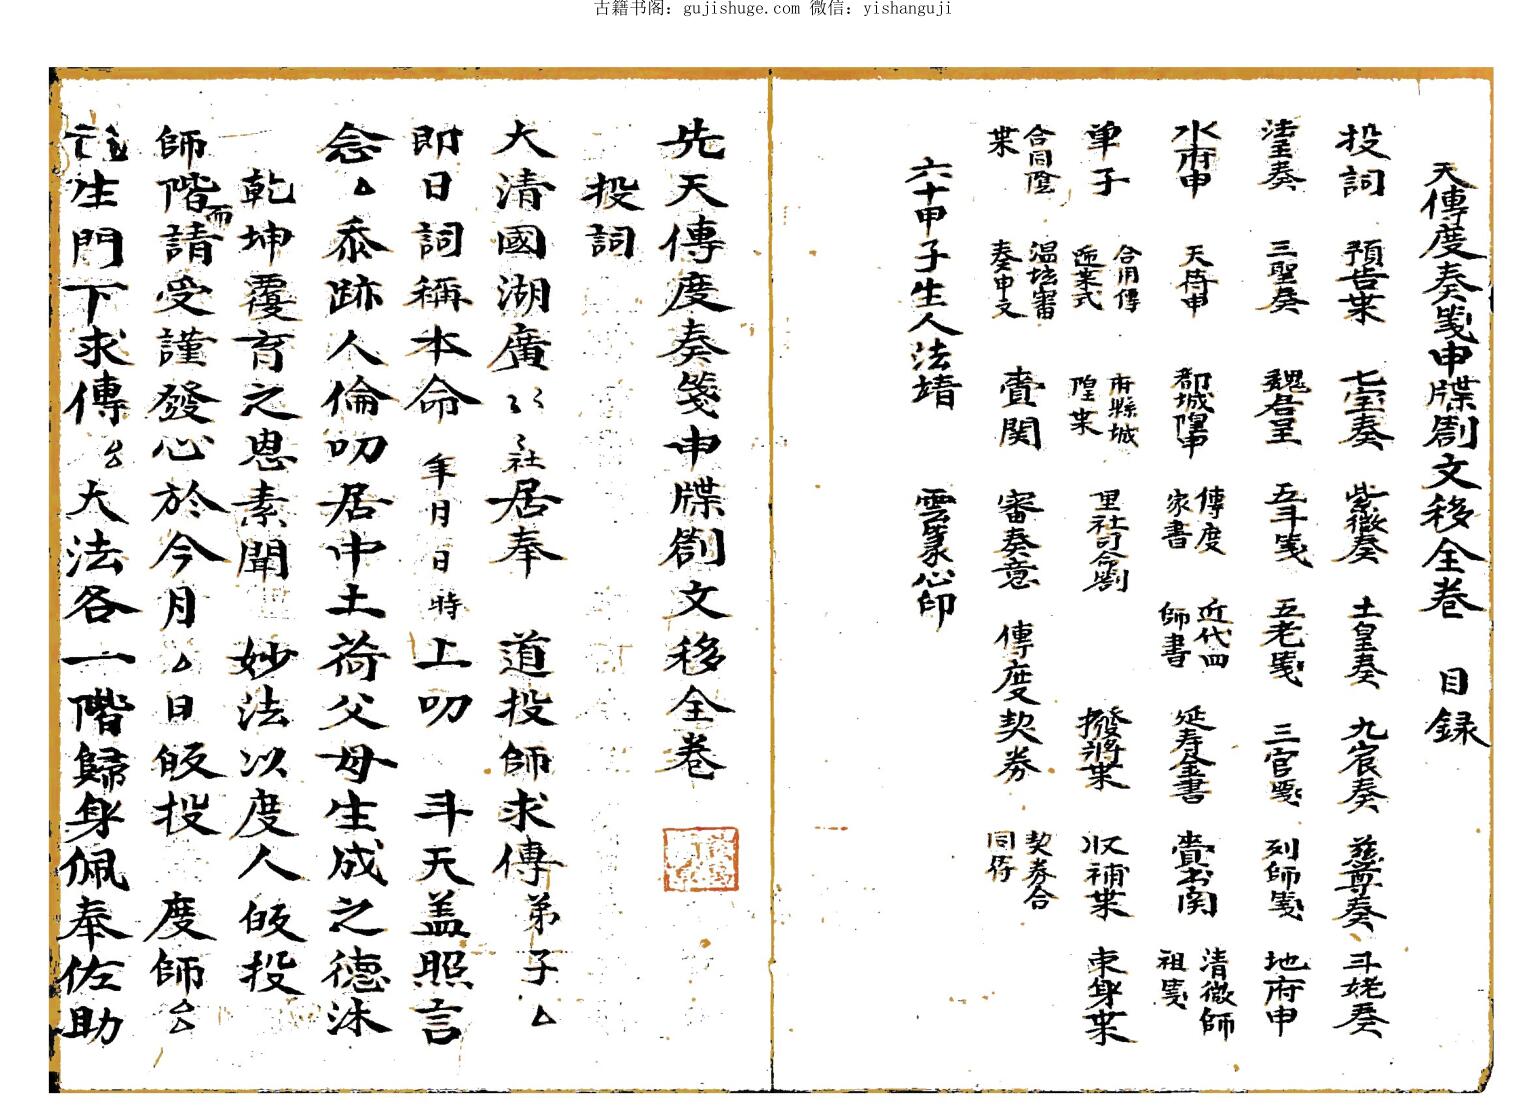 古籍书阁：gujishuge.com 微信：yishanguji
天傳度奏箋申牒劄文移全卷 目録
投詞 預告枼 七宝奏 紫微奏 土皇奏 九宸奏 慈尊奏 斗姥奏
法王奏 三聖奏 魏君呈 五斗箋 五老箋 三官箋 列師箋 地府申
水府申 天符申 都城隍申 傳度家書 近代四師書 延寿金書 賫书関 清微師祖箋
单子 合用傳逓枼式 府縣城隍枼 里社司命劄 撥將枼 収補枼 束身枼
合同隂枼 温坛審奏申文 賫関 審奏意 傳度契券 契券合同符
六十甲子生人法靖 雲篆心印
先天傳度奏箋申牒劄文移全卷
投詞
大清國湖廣 社居奉 道投師求傳弟子厶
即日詞稱本命 年月日時 上叨 斗天盖照言
念厶忝跡人倫叨居中土荷父母生成之德沐
乾坤覆育之恩素聞 妙法以度人皈投
師階而請受謹發心於今月厶日皈投 度師厶厶
生門下求傳厶厶大法各一階歸身佩奉佐助